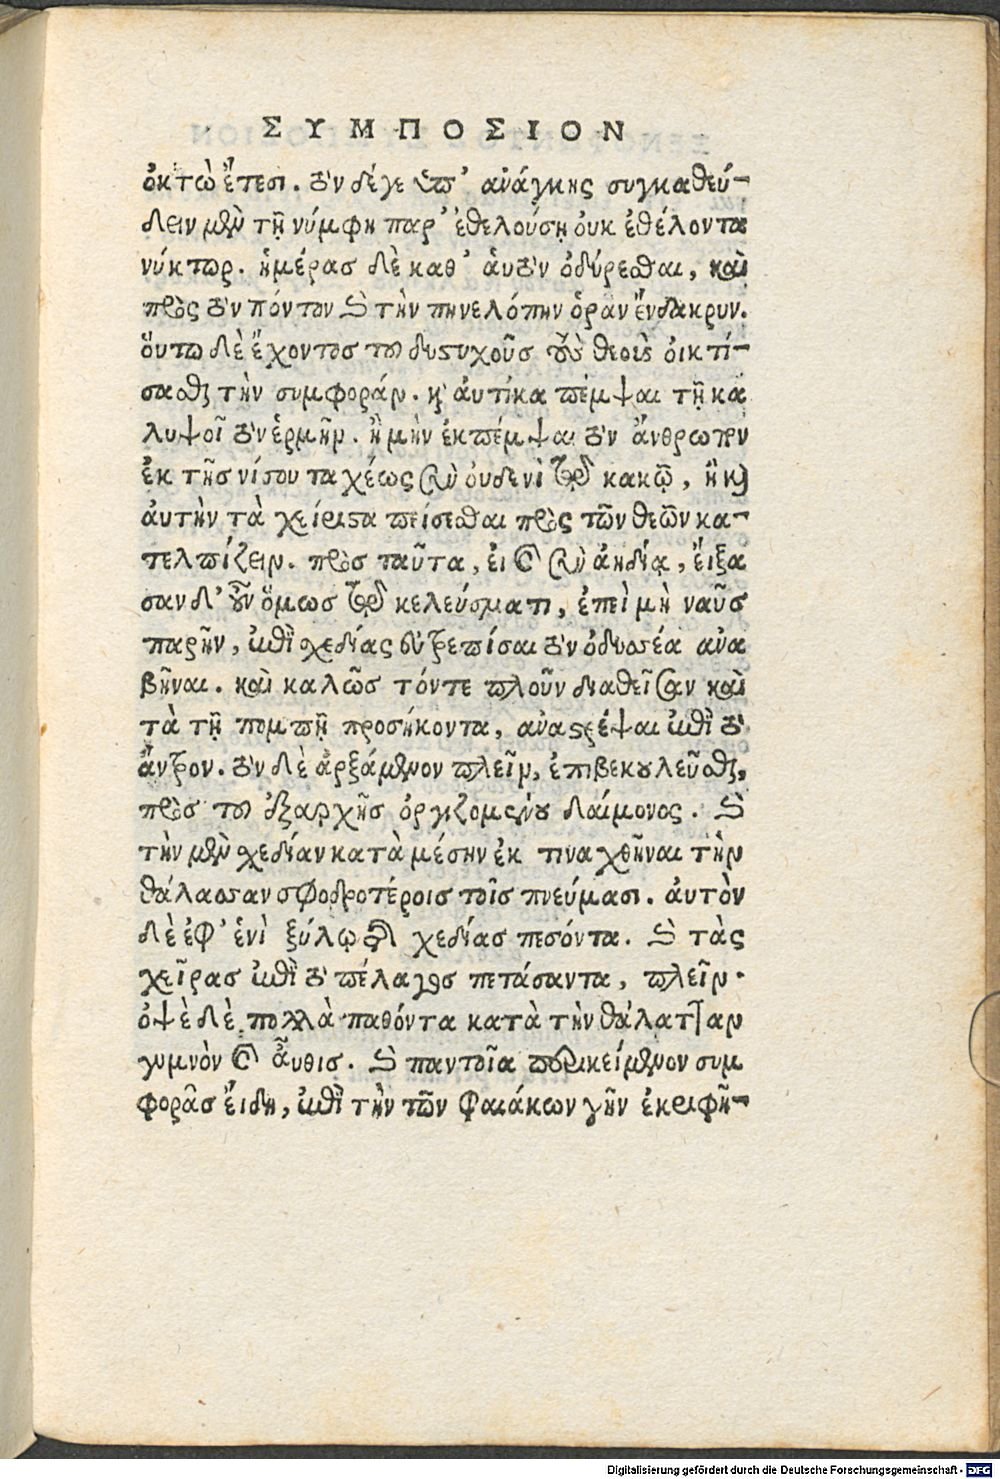 ΣΥΜΠΟΣΙΟΝ
ὀκτὼ ἔτεσι. τὸν δέγε ὑπ' ἀνάγκης συγκαθεύ-
δειν μὲν τῇ νύμφῃ παρ' ἐθελούσῃ οὐκ ἐθέλοντα
νύκτωρ. ἡμέρας δὲ καθ' ἁυτὸν ὀδύρεσθαι, καὶ
πρὸς τὸν πόντον καὶ τὴν πηνελόπην ὁρᾶν ἔνδακρυν.
ὅυτω δὲ ἔχοντος τοῦ δυστυχοῦς τοὺς θεοὺς ὀικτί-
σασθαι τὴν συμφοράν. καὶ ἀυτίκα πέμψαι τῇ κα
λυψοῖ τὸν ἑρμῆν. ἢ μὴν ἐκπέμψαι τὸν ἄνθρωπον
ἐκ τῆς νήσου ταχέως σὺν ὀυδενὶ τῷ κακῷ, ἢ καὶ
ἀυτὴν τὰ χείριστα πείσεσθαι πρὸς τῶν θεῶν κα-
τελπίζειν. πρὸς ταῦτα, ἐι καὶ σὺν ἀηδίᾳ, ἔιξα
σαν δ' οὖν ὅμως τῷ κελεύσματι, ἐπεὶ μὴ ναῦς
παρῆν, ἐπὶ σχεδίας ἐυτρεπίσαι τὸν ὀδυσσέα ἀνα
βῆναι. καὶ καλῶς τόντε πλοῦν διαθεῖσαν καὶ
τὰ τῇ πομπῇ προσήκοντα, ἀναστρέψαι ἐπὶ τὸ
ἄντρον. τὸν δὲ ἀρξάμενον πλεῖν, ἐπιβεβουλεῦσθαι,
πρὸς τοῦ ἐξαρχῆς ὀργιζομένου δαίμονος. καὶ
τὴν μὲν σχεδίαν κατὰ μέσην ἐκτιναχθῆναι τὴν
θάλασσαν σφοδροτέροις τοῖς πνεύμασι. ἀυτὸν
δὲ ἐφ' ἑνὶ ξύλῳ τῆς σχεδίας πεσόντα. καὶ τὰς
χεῖρας ἐπὶ τὸ πέλαγος πετάσαντα, πλεῖν.
ὀψὲ δὲ πολλὰ παθόντα κατὰ τὴν θάλατταν
γυμνὸν καὶ ἆυθις. καὶ παντοῖα περικείμενον συμ
φορᾶς ἔιδη, ἐπὶ τὴν τῶν Φαιάκων γῆν ἐκριφῆ-
Digitalisierung gefördert durch die Deutsche Forschungsgemeinschaft - DFG